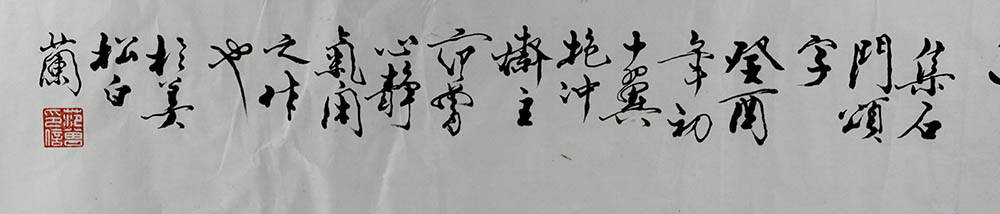 集石
門頌
字
癸酉
年初
十翼
抱冲
齋主
范曾
心靜
氣閑
之作
也
於美
松白
蘭